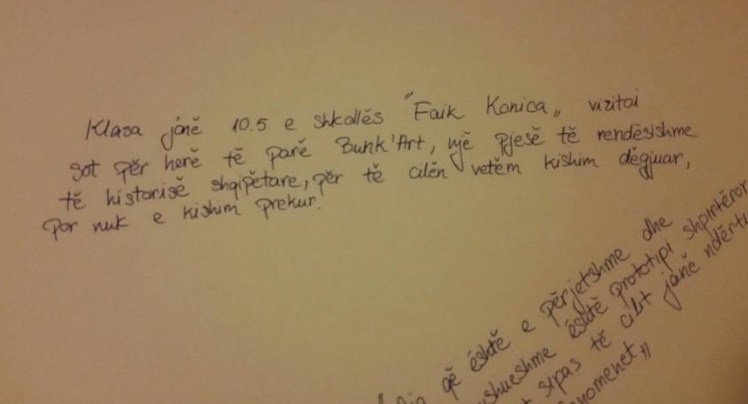 Klasa jonë 10.5 e shkollës "Faik Konica„ vizitoi
sot për herë të parë Bunk'Art, një pjesë të rendësishme
të historisë shqipëtare, për të cilën vetëm kishim dëgjuar,
por nuk e kishim prekur.
që është e përjetshme dhe
është prototipi shpirtëror
sipas të cilit janë ndërti